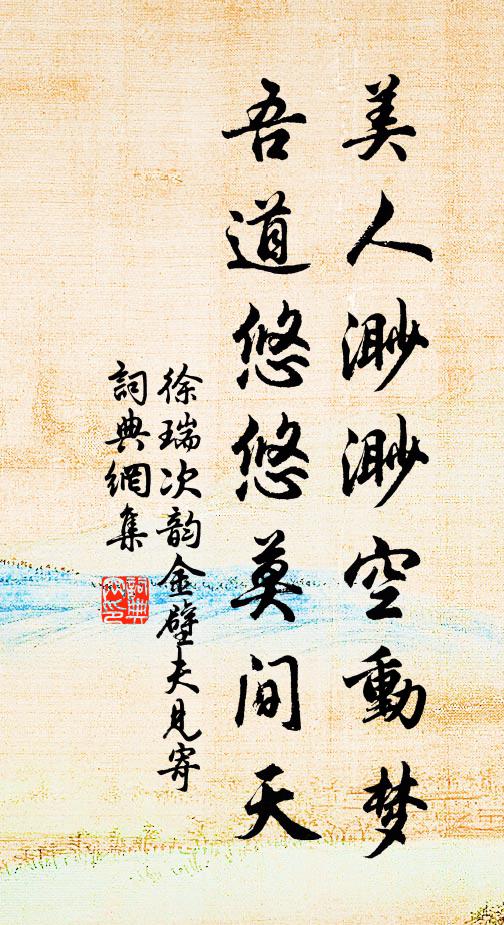 美人渺渺空動梦
吾道悠悠莫间天
徐瑞次韵金壁夫見寄
詞典網集